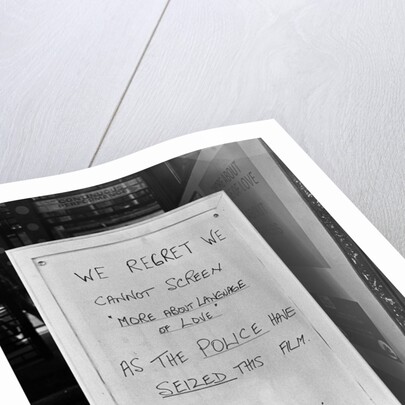 CONTINUOUS
ABOUT
LOVE
WE REGRET WE
CANNOT SCREEN
"MORE ABOUT LANGUAGE
OF LOVE"
AS THE POLICE HAVE
SEIZED THIS FILM.